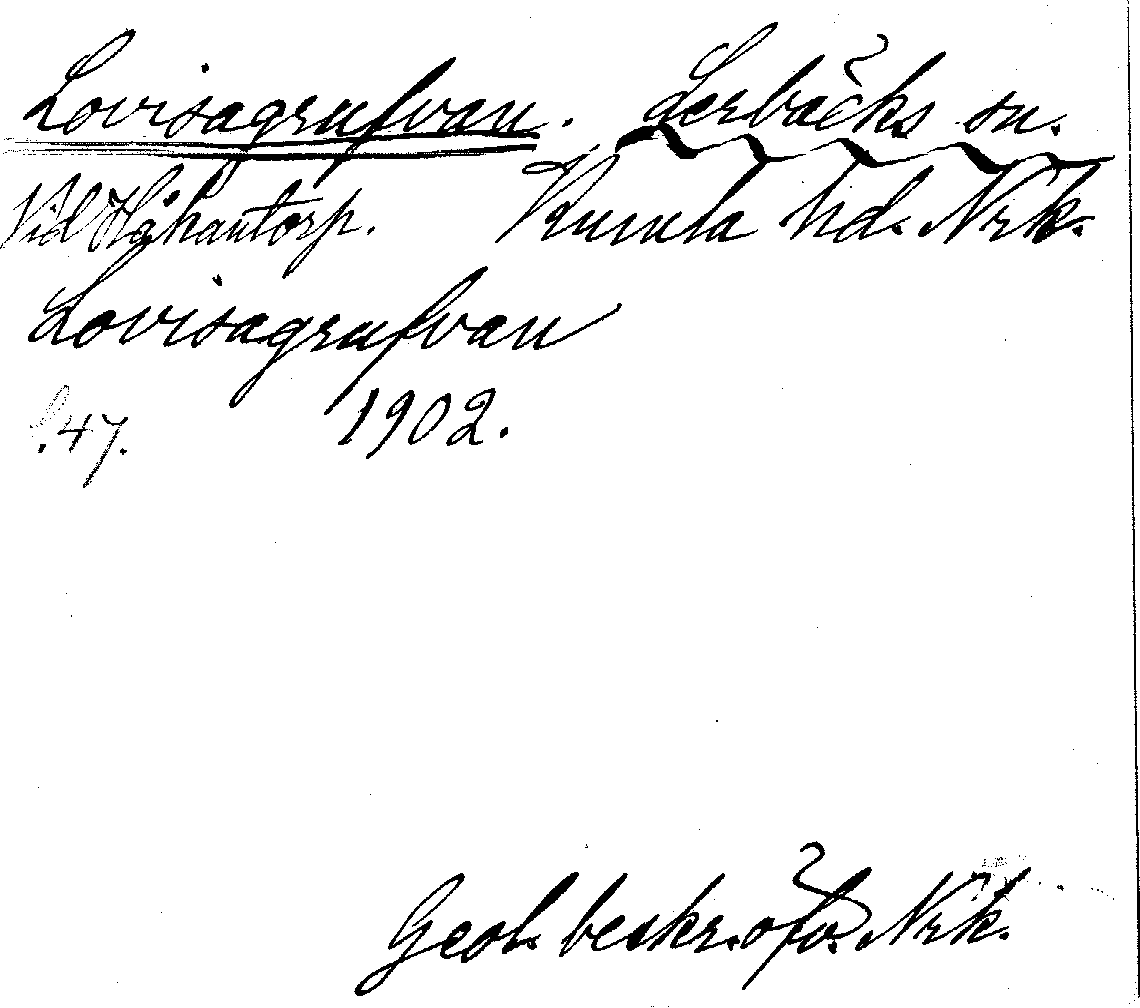 Lovisagrufvan. Lerbäcks sn.
Vid Håkantorp. Kumla hd. Nrk.
Lovisagrufvan
s.47. 1902.
Geol. beskr. öfv. Nrk.